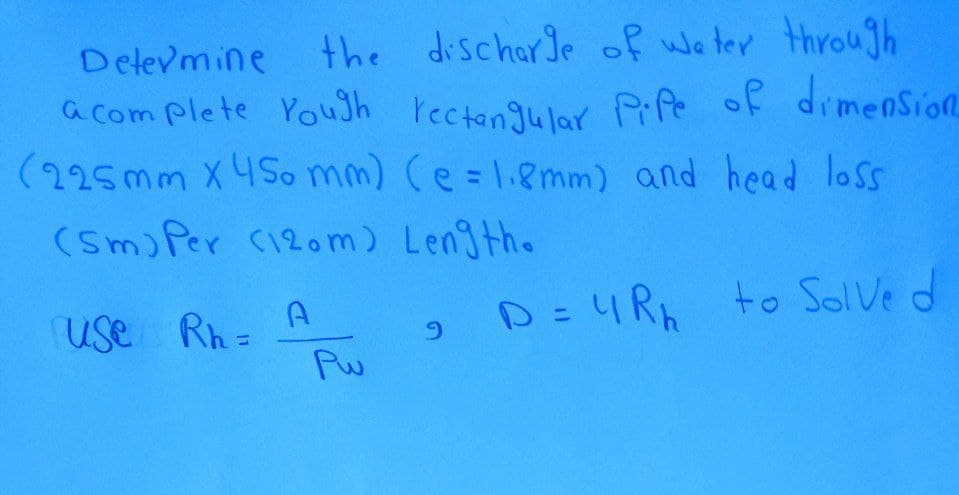 Determine the discharge of water through
a complete rough rectangular Pipe of dimension
(225mm X 450 mm) (e = 1.8mm) and head loss
(5m) Per (120m) Length.
use Rh = A / Pw , D = 4Rh to Solve d